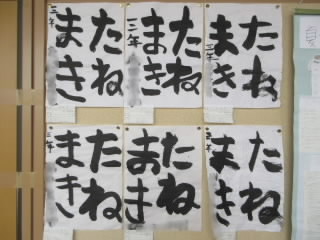 たね
まき
三年
たね
まき
三年
たね
まき
三年
たね
まき
三年
たね
まき
たね
まき
三年